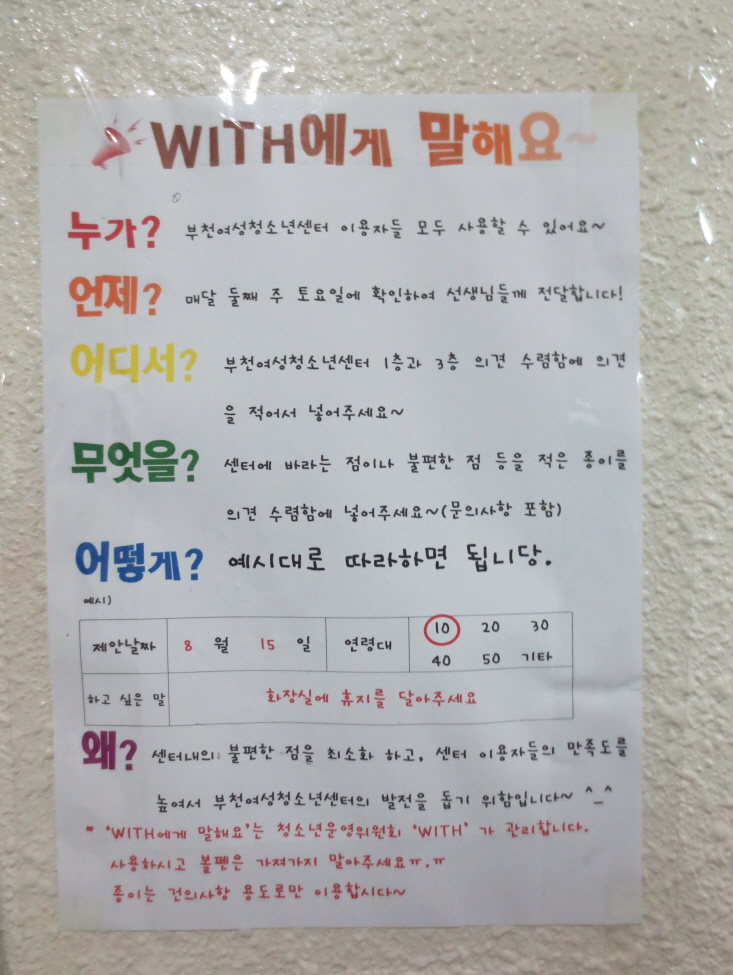 WITH에게 말해요~
누가? 부천여성청소년센터 이용자들 모두 사용할 수 있어요~
언제? 매달 둘째 주 토요일에 확인하여 선생님들께 전달합니다!
어디서? 부천여성청소년센터 1층과 3층 의견 수렴함에 의견
을 적어서 넣어주세요~
무엇을? 센터에 바라는 점이나 불편한 점 등을 적은 종이를
의견 수렴함에 넣어주세요~(문의사항 포함)
어떻게? 예시대로 따라하면 됩니당.
예시)
제안날짜 8 월 15 일 연령대 10 20 30
40 50 기타
하고 싶은 말 화장실에 휴지를 달아주세요
왜? 센터내의 불편한 점을 최소화 하고, 센터 이용자들의 만족도를
높여서 부천여성청소년센터의 발전을 돕기 위함입니다~ ^_^
* 'WITH에게 말해요'는 청소년운영위원회 'WITH' 가 관리합니다.
사용하시고 볼펜은 가져가지 말아주세요ㅠ.ㅠ
종이는 건의사항 용도로만 이용합시다~